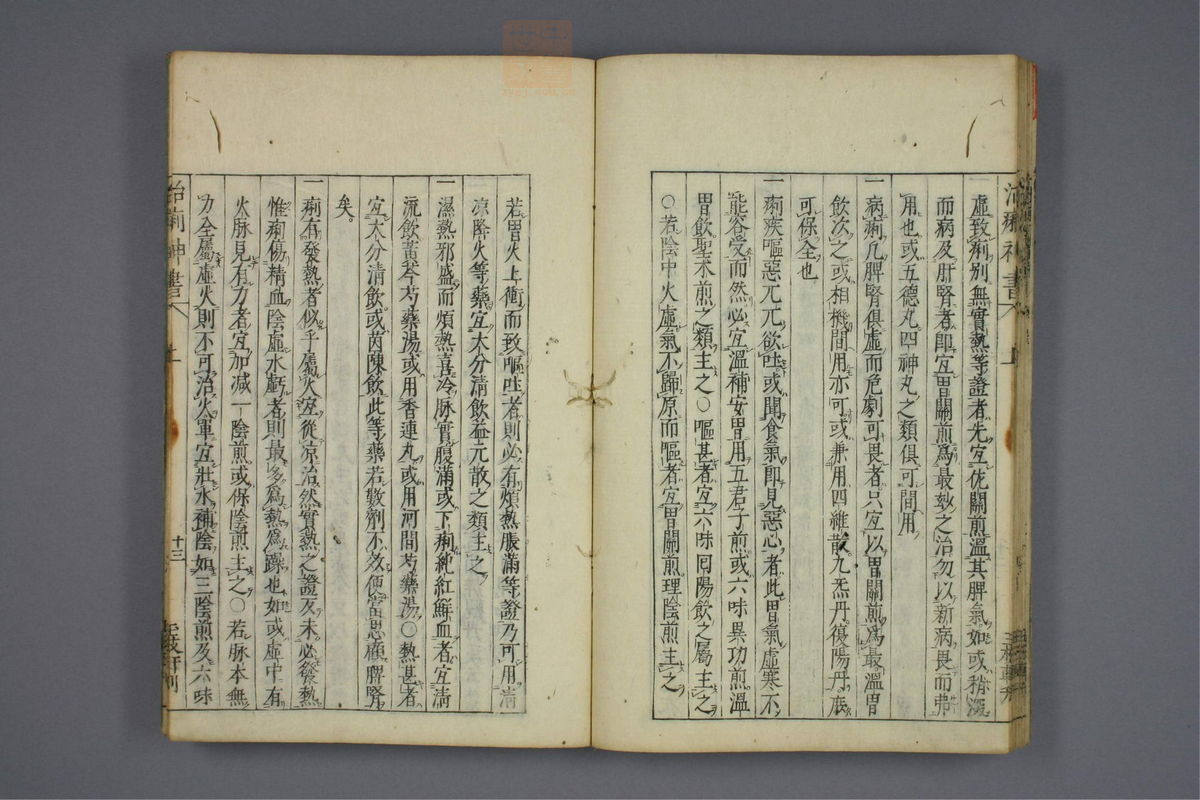 一虛致痢別無實熱等證者先宜佐關煎溫其脾氣如或稍澁
而病及肝腎者卽宜胃關煎爲最妙之治勿以新病畏而弗
用也或五德丸四神丸之類俱可間用
一病痢凡脾腎俱虛而危劇可畏者只宜以胃關煎爲最溫胃
飲次之或相機間用亦可或兼用四維散九炁丹復陽丹庶
可保全也
一痢疾嘔惡兀兀欲吐或聞食氣卽見惡心者此胃氣虛寒不
能容受而然必宜溫補安胃用五君子煎或六味異功煎溫
胃飲聖朮煎之類主之○嘔甚者宜六味回陽飲之屬主之
○若陰中火虛氣不歸原而嘔者宜胃關煎理陰煎主之
若胃火上衝而致嘔吐者則必有煩熱脹滿等證乃可用淸
凉降火等藥宜大分淸飮益元散之類主之
一濕熱邪盛而煩熱喜冷脉實腹滿或下痢純紅鮮血者宜淸
流飲黃芩芍藥湯或用香連丸或用河間芍藥湯○熱甚者
宜大分淸飲或茵陳飲此等藥若數劑不效便當思顧脾腎
矣
一痢有發熱者似乎屬火宜從凉治然實熱之證反未必發熱
惟痢傷精血陰虛水虧者則最多爲熱爲躁也如或虛中有
火脉見有力者宜加减一陰煎或保陰煎主之○若脉本無
力全屬虛火則不可治火單宜壯水補陰如三陰煎及六味
治痢神書
上
十三